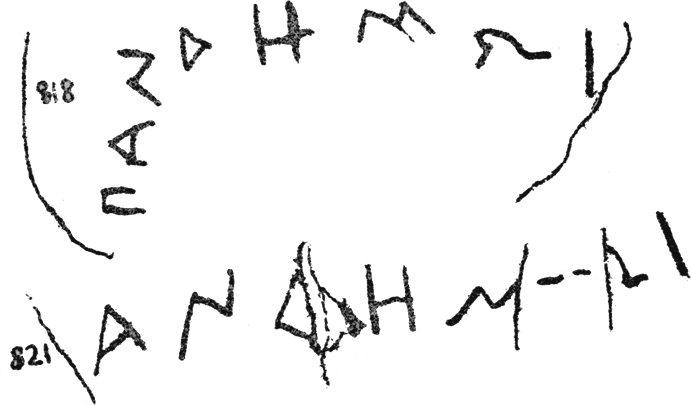 818 ΠΑΝΔΗΜΩΙ
821 ΑΝΔΗΜ--ΩΙ